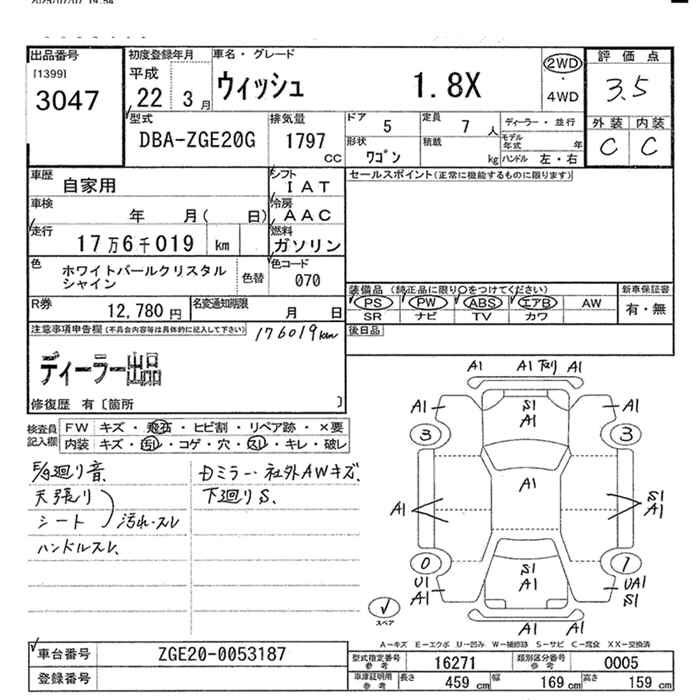 2025/07/07 19:54
出品番号 初度登録年月 車名・グレード 評価点
[1399] 平成 ウィッシュ 1.8X 2WD 3.5
3047 22 3月 ・ 4WD 外装 内装
型式 排気量 ドア 5 定員 7人 ディーラー・並行 C C
DBA-ZGE20G 1797 cc 形状 ワゴン 積載 kg モデル年式 年
ハンドル 左・右
車歴 自家用 シフト IAT セールスポイント(正常に機能するものに限ります)
車検 年 月( 日) 冷房 AAC
走行 17万6千019 km 燃料 ガソリン
色 ホワイトパールクリスタルシャイン 色替 色コード 070
装備品 (純正品に限り○をつけてください) 新車保証書
PS PW ABS エアB AW 有・無
SR ナビ TV カワ
R券 12,780円 名変通知期限 月 日
後日品
注意事項申告欄(不具合内容等は具体的に記入して下さい) 176019km
ディーラー出品
修復歴 有〔箇所 〕
検査員記入欄 FW キズ・飛石・ヒビ割・リペア跡・×要
内装 キズ・汚レ・コゲ・穴・スレ・キレ・破レ
廻り音. Dミラー・社外AWキズ.
天張り 下廻りS.
シート 汚れ・スレ
ハンドルスレ.
A1 A1 下スリ A1
A1 S1 A1 A1
3 3
A1
A1 S1 A1
0 S1 A1 1
U1 A1 UA1 S1
A1 A1
スペア
A-キズ E-エクボ U-凹み W-補修跡 S-サビ C-腐食 XX-交換済
車台番号 ZGE20-0053187
登録番号
型式指定番号 参考 16271 類別区分番号 参考 0005
車庫証明用 参考 長さ 459cm 幅 169cm 高さ 159cm